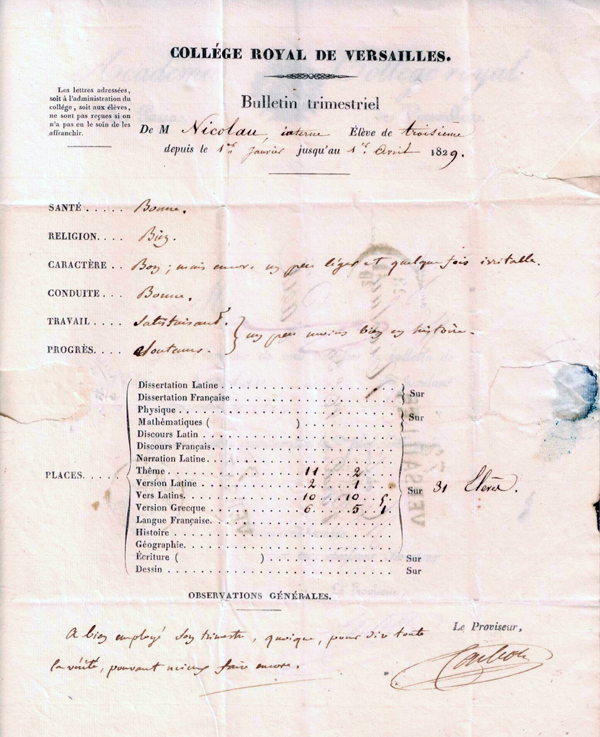 COLLÉGE ROYAL DE VERSAILLES.
Les lettres adressées,
soit à l'administration du
collége, soit aux élèves,
ne sont pas reçues si on
n'a pas eu le soin de les
affranchir.
Bulletin trimestriel
De M Nicolau, interne Élève de troisieme
depuis le 1er Janvier jusqu'au 1er Avril 1829.
SANTÉ..... Bonne.
RELIGION.... Bien.
CARACTÈRE.. Bon; mais encore un peu léger et quelquefois irritable.
CONDUITE... Bonne.
TRAVAIL.... Satisfaisant.
un peu moins bien en histoire.
PROGRÈS.... Soutenus.
PLACES.....
Dissertation Latine
Dissertation Française
Sur
Physique
Mathématiques ( )
Sur
Discours Latin
Discours Français
Narration Latine
Thême 11 2
Version Latine 2 1
Vers Latins 10 10 5
Sur 31 Élèves.
Version Grecque 6 5 1
Langue Française
Histoire
Géographie
Écriture ( ) Sur
Dessin Sur
OBSERVATIONS GÉNÉRALES.
A bien employé son trimestre, quoique, pour dire toute
la vérité, pouvant mieux faire encore.
Le Proviseur,
VERSAILLES